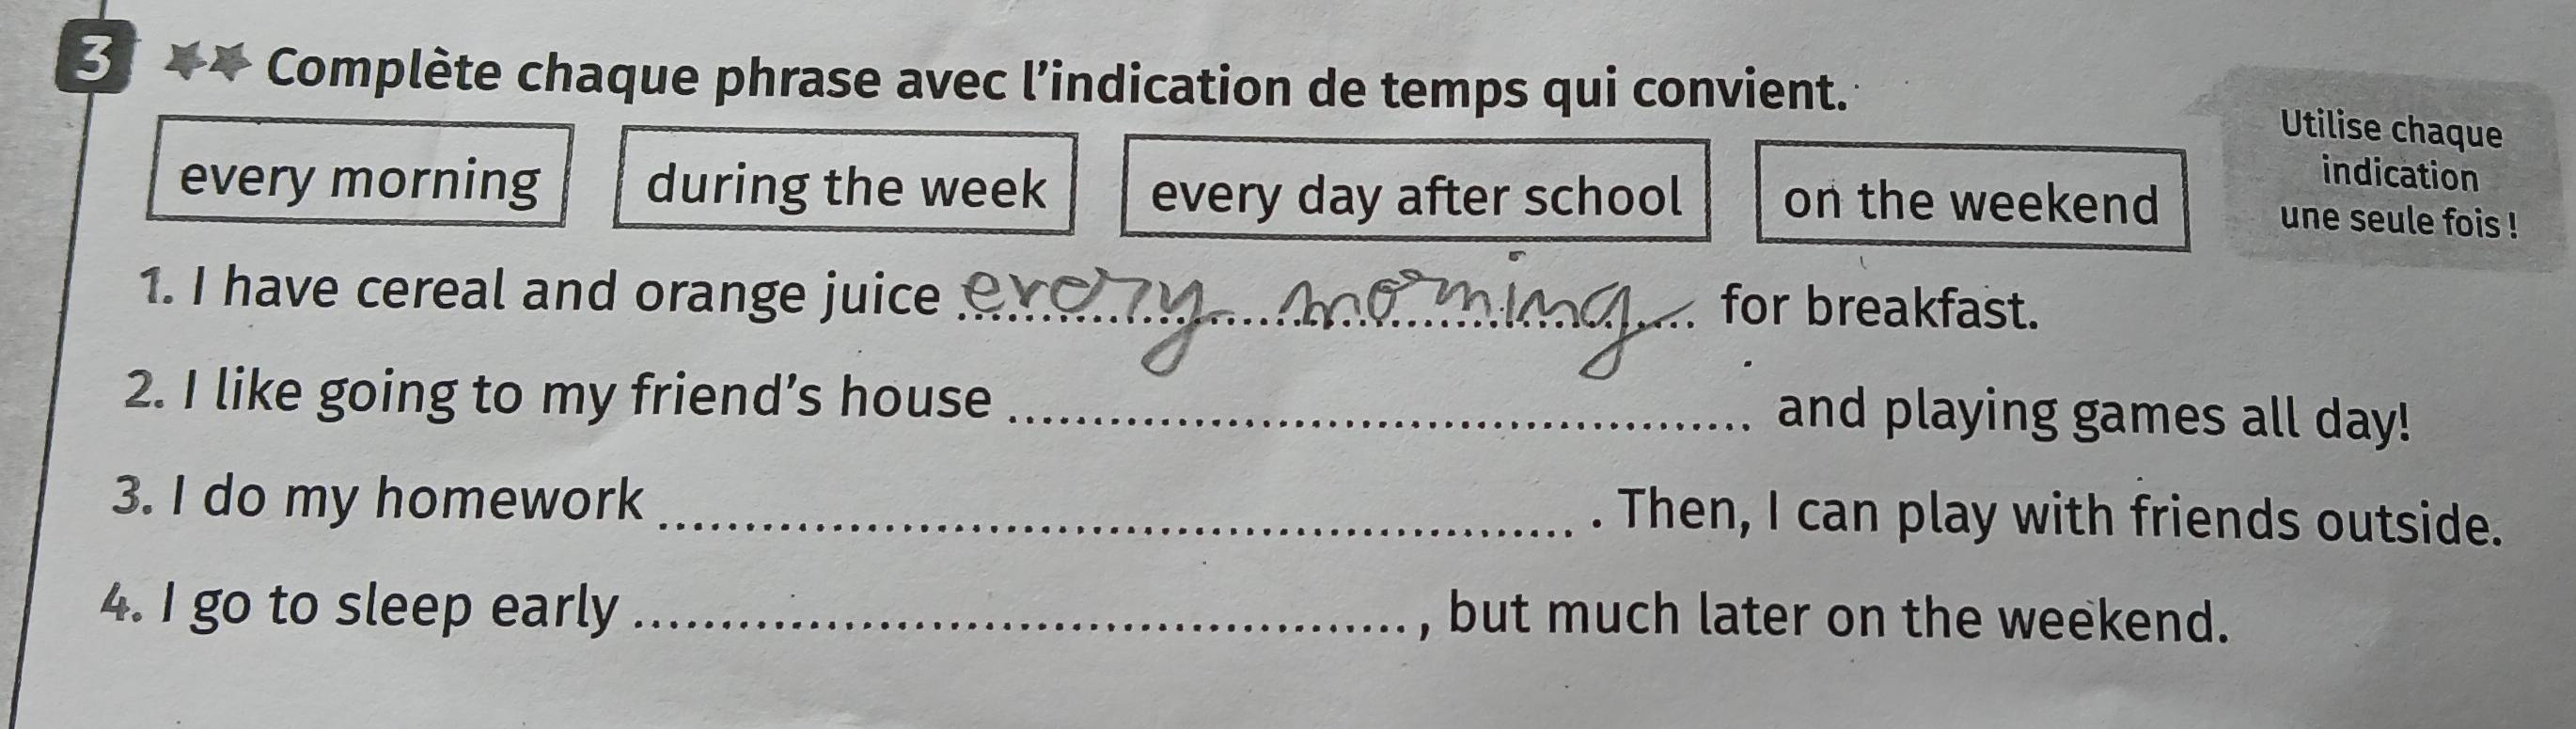 3 ★★ Complète chaque phrase avec l'indication de temps qui convient.
every morning during the week every day after school on the weekend
Utilise chaque
indication
une seule fois !
1. I have cereal and orange juice every morning for breakfast.
2. I like going to my friend's house ........ and playing games all day!
3. I do my homework ........ . Then, I can play with friends outside.
4. I go to sleep early ........ , but much later on the weekend.